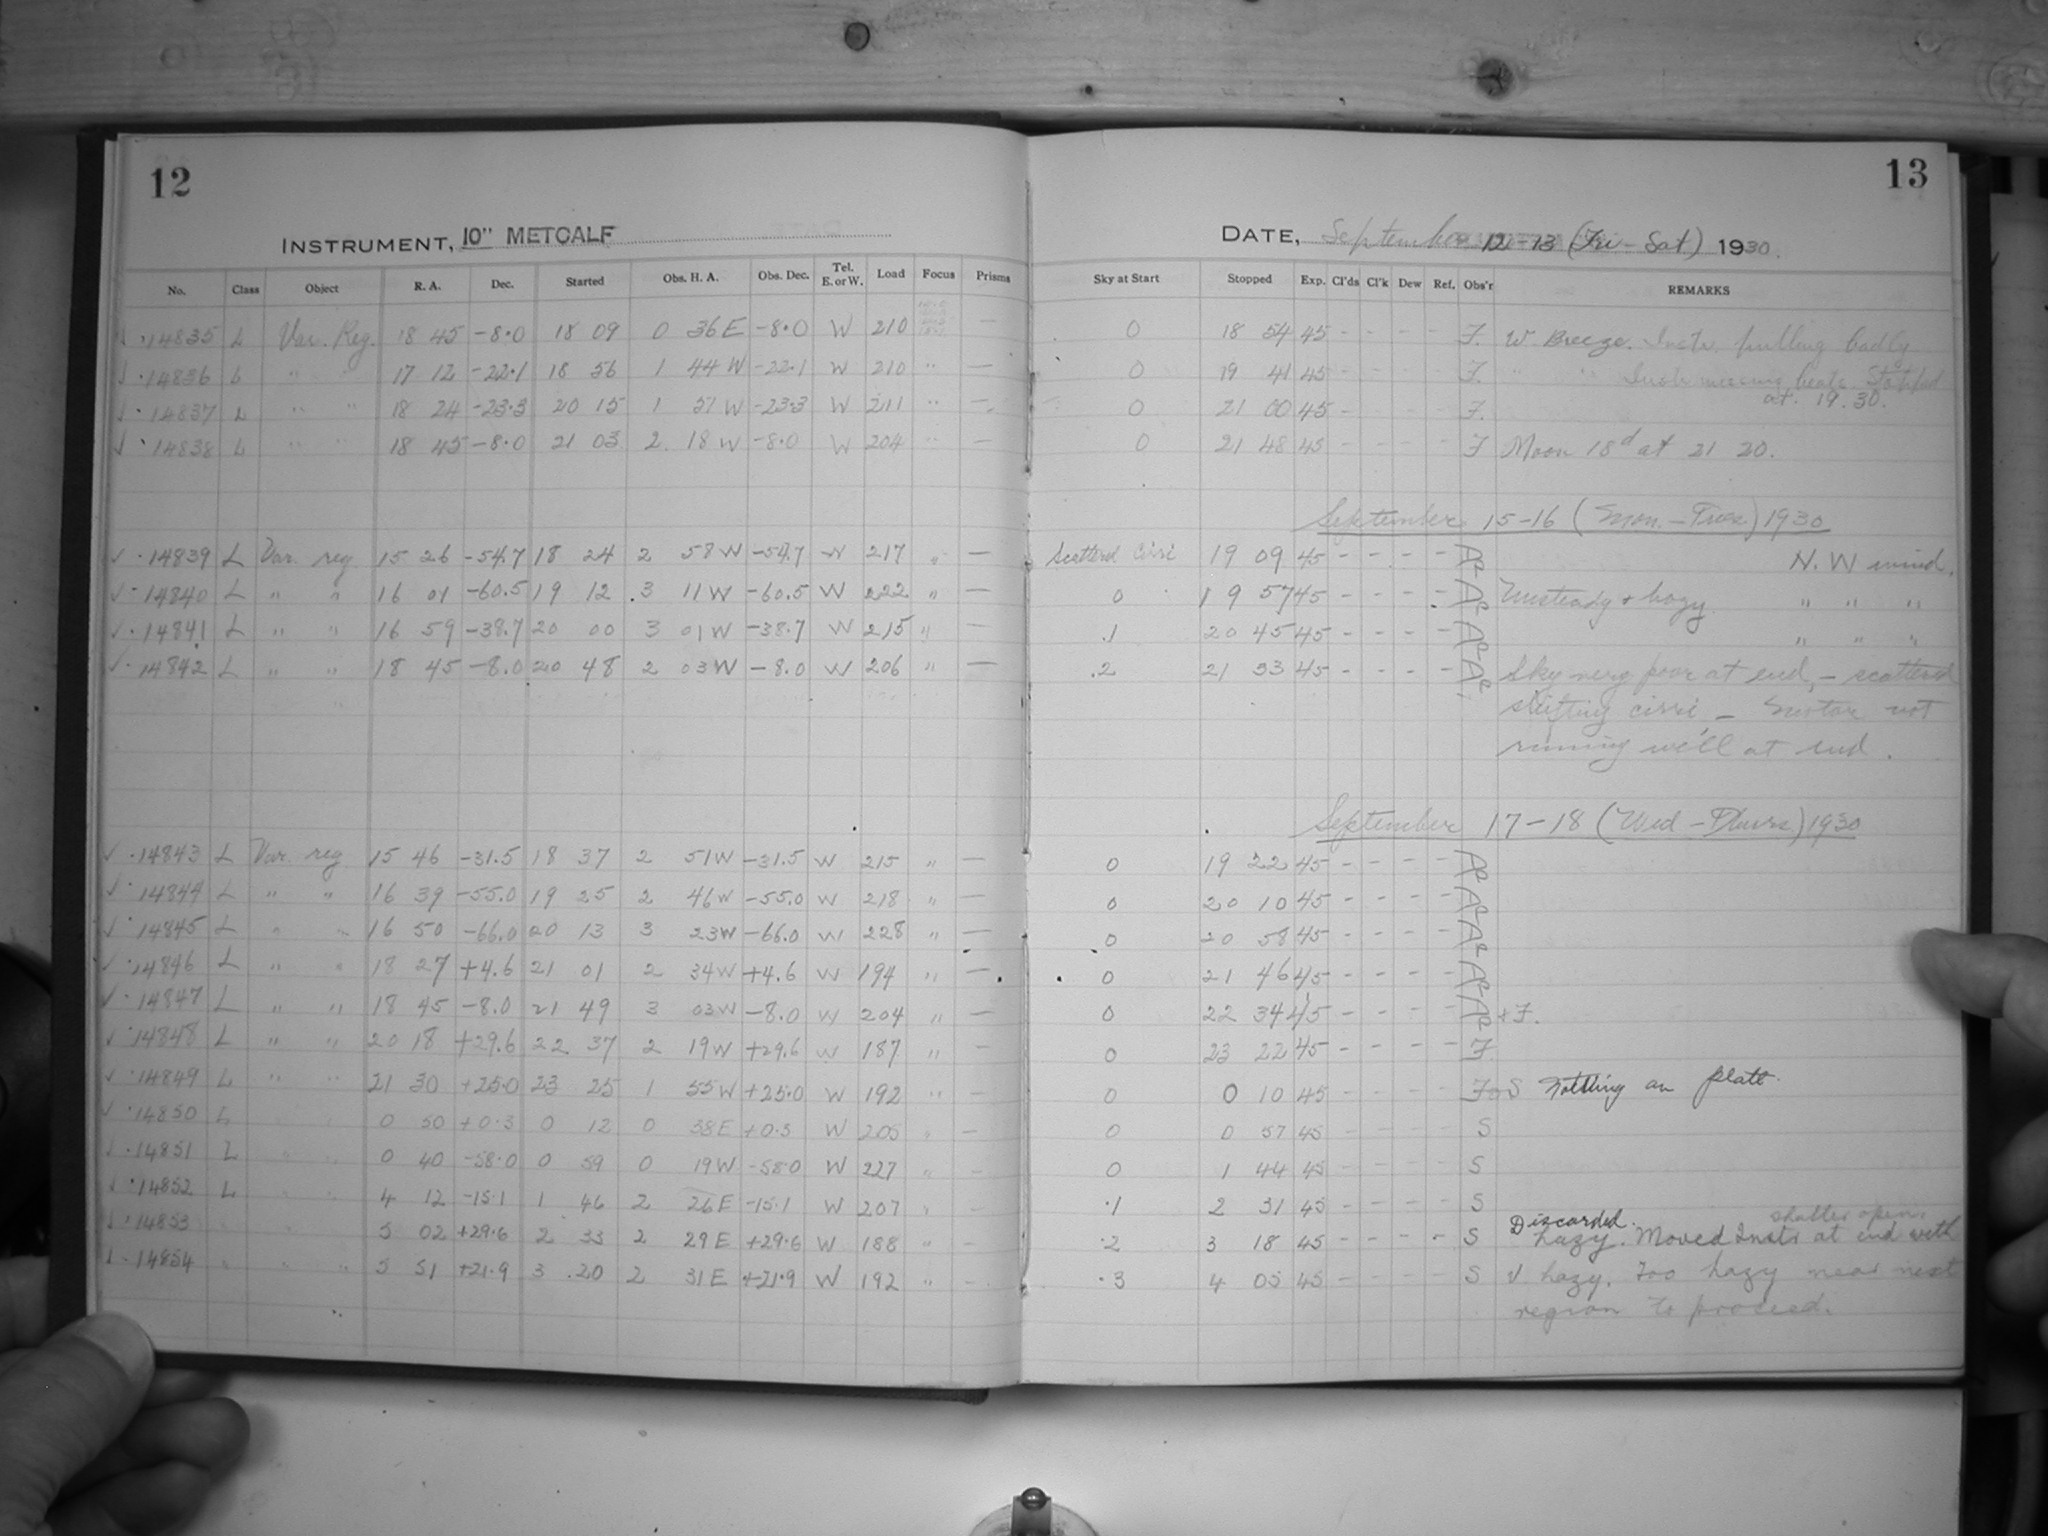 12
13
INSTRUMENT, 10" METCALF
DATE, September 12-13 (Fri-Sat) 1930.
No. Class Object R. A. Dec. Started Obs. H. A. Obs. Dec. Tel. E. or W. Load Focus Prisms Sky at Start Stopped Exp. Cl'ds Cl'k Dew Ref. Obs'r REMARKS
14835 L Var. Reg. 18 45 -8.0 18 09 0 36 E -8.0 W 210 — 0 18 54 45 - - - - F. W. Breeze. Instr. pulling badly
14836 L " " 17 12 -22.1 18 56 1 44 W -22.1 W 210 " — 0 19 41 45 - - - - F. " " Instr. missing beats. Stopped
at 19.30.
14837 L " " 18 24 -23.3 20 15 1 51 W -23.3 W 211 " — 0 21 00 45 - - - - F.
14838 L " " 18 45 -8.0 21 03 2 18 W -8.0 W 204 " — 0 21 48 45 - - - - F Moon 18d at 21 20.
September 15-16 (Mon.-Tues.) 1930
14839 L Var. reg 15 26 -54.7 18 24 2 58 W -54.7 W 217 " — Scattered Cirri 19 09 45 - - - - N. W wind.
14840 L " " 16 01 -60.5 19 12 3 11 W -60.5 W 222 " — 0 19 57 45 - - - - Unsteady + hazy. " " "
14841 L " " 16 59 -38.7 20 00 3 01 W -38.7 W 215 " — .1 20 45 45 - - - - " " "
14842 L " " 18 45 -8.0 20 48 2 03 W -8.0 W 206 " — .2 21 33 45 - - - - Sky very poor at end, - scattered
shifting cirri - Motor not
running well at end.
September 17-18 (Wed-Thurs) 1930
14843 L Var. reg 15 46 -31.5 18 37 2 51 W -31.5 W 215 " — 0 19 22 45 - - - -
14844 L " " 16 39 -55.0 19 25 2 46 W -55.0 W 218 " — 0 20 10 45 - - - -
14845 L " " 16 50 -66.0 20 13 3 23 W -66.0 W 228 " — 0 20 58 45 - - - -
14846 L " " 18 27 +4.6 21 01 2 34 W +4.6 W 194 " — 0 21 46 45 - - - -
14847 L " " 18 45 -8.0 21 49 3 03 W -8.0 W 204 " — 0 22 34 45 - - - - + F.
14848 L " " 20 18 +29.6 22 37 2 19 W +29.6 W 187 " — 0 23 22 45 - - - - F
14849 L " " 21 30 +25.0 23 25 1 55 W +25.0 W 192 " — 0 0 10 45 - - - - S Nothing on plate.
14850 L 0 50 +0.3 0 12 0 38 E +0.3 W 205 " — 0 0 57 45 - - - - S
14851 L " " 0 40 -58.0 0 59 0 19 W -58.0 W 227 " - 0 1 44 45 - - - - S
14852 L " " 4 12 -15.1 1 46 2 26 E -15.1 W 207 " - .1 2 31 45 - - - - S
14853 " " 5 02 +29.6 2 33 2 29 E +29.6 W 188 " - .2 3 18 45 - - - - S Discarded. shutter open.
hazy. Moved Instr at end with
14854 " " " 5 51 +21.9 3 20 2 31 E +21.9 W 192 " - .3 4 05 45 - - - - S V hazy. Too hazy near next
region to proceed.